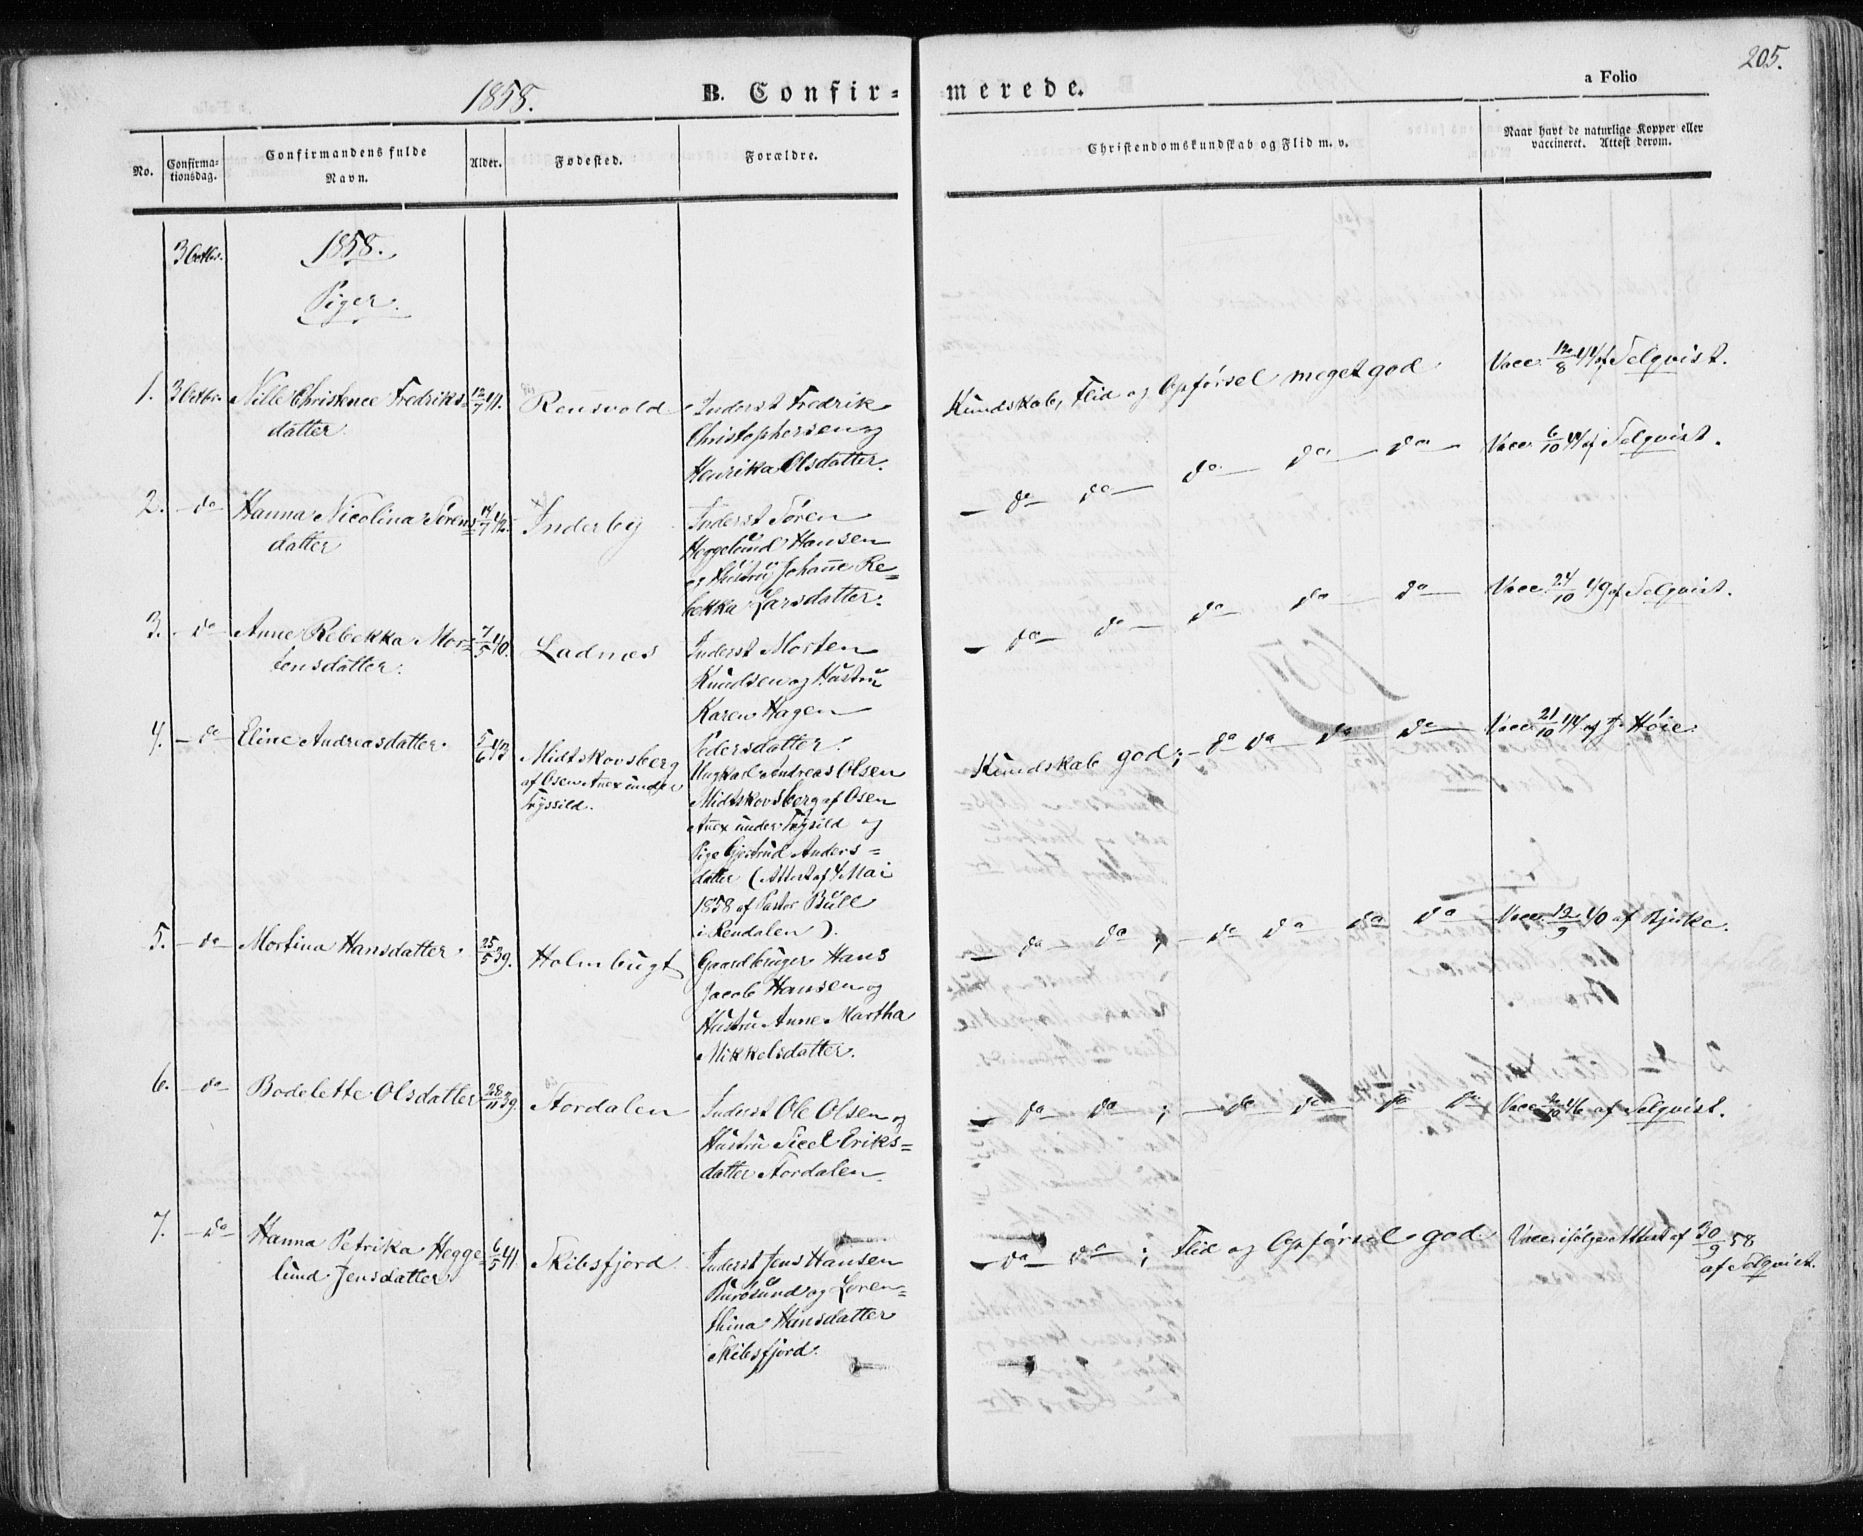 205.
1858.
B. Confir- merede.
a Folio
No.
Confirma-
tionsdag.
Confirmandens fulde
Navn.
Alder.
Fødested.
Forældre.
Christendomskundskab og Flid m. v.
Naar havt de naturlige Kopper eller
vaccineret. Attest derom.
3 Octbr.
1858.
Piger.
1. 3 Octbr. Nille Christence Fredriks-
datter
12/7 41.
Rensvold
Inderst Fredrik
Christophersen og
Henrika Olsdatter.
Kundskab, Flid og Opførsel meget god
Vacc. 12/8 44 af Selqvist.
2. - do Hanna Nicolina Sørens-
datter
14/7 42.
Inderby
Inderst Søren
Heggelund Hansen
og Hustru Johanne Re-
bekka Larsdatter.
- do - do - do - do - do -
Vacc. 6/10 44 af Selqvist.
3. - do Anne Rebekka Mor-
tensdatter.
7/5 40.
Ladnæs
Inderst Morten
Knudsen og Hustru
Karen Hagen
Pedersdatter.
- do - do - do - do - do -
Vacc. 24/10 49 af Selqvist.
4. - do Eline Andreasdatter.
5/6 43
Midtskovsberg
af Osen Anex under
Tryssild.
Ungkarl Andreas Olsen
Midtskovsberg af Osen
Anex under Trysild og
Pige Gjertrud Anders-
datter (Attest af 4 Mai
1858 af Pastor Bull
i Rendalen).
Kundskab god; - do do - do - do -
Vacc. 21/10 44 af J. Høie.
5. - do - Mortina Hansdatter.
25/5 39.
Holmbugt
Gaardbruger Hans
Jacob Hansen og
Hustru Anne Martha
Mikkelsdatter.
- do - do ; - do do - do - do -
Vacc. 12/9 40 af Bjerke.
6. - do - Bodelette Olsdatter
28/11 39.
Stordalen
Inderst Ole Olsen og
Hustru Sicel Eriks-
datter Stordalen
- do - do - ; - do - do - do do
46 af Selqvist.
7. - do - Hanna Petrika Hegge-
lund Jensdatter
6/5 41.
Skibsfjord
Inderst Jens Hansen
Buvøsund og Loren-
thina Hansdatter
Skibsfjord.
- do - do - ; Flid og Opførsel god
Vacc. ifølge Attest af 30/9 58
af Selqvist.
1859.